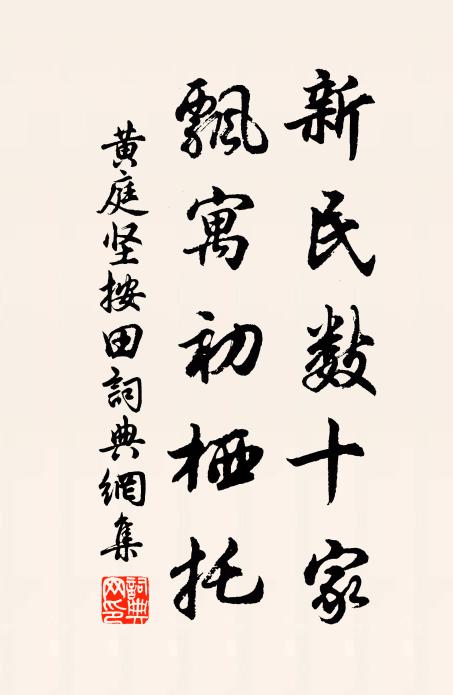 新民数十家
飘寓初栖托
黄庭坚按田詞典網集
詞典网印